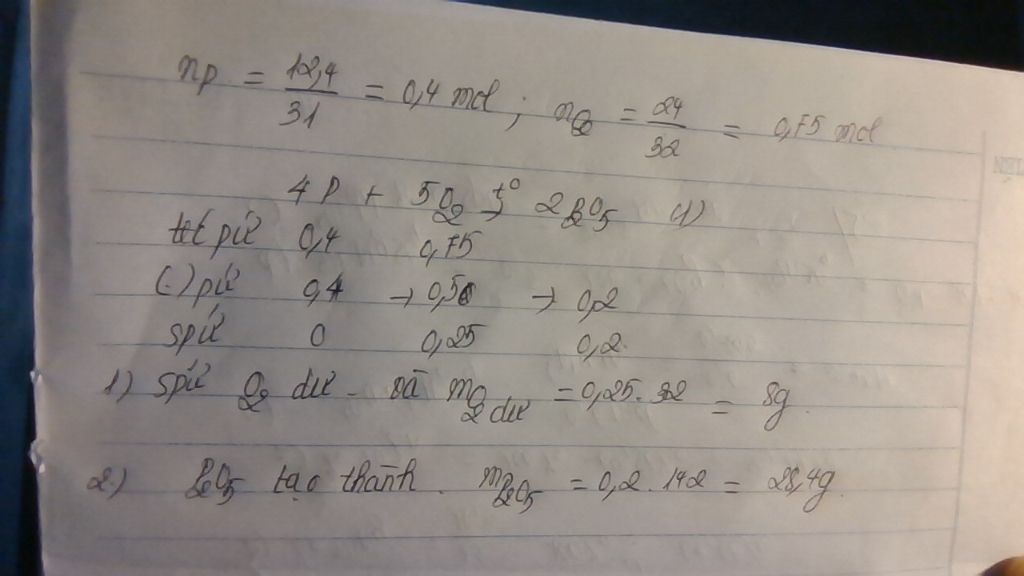 nP = 12,4/31 = 0,4 mol ; nO2 = 24/32 = 0,75 mol
4P + 5O2 t°→ 2P2O5 (1)
trt pứ 0,4 0,75
(.) pứ 0,4 → 0,5 → 0,2
spứ 0 0,25 0,2
1) spứ O2 dư. và mO2 dư = 0,25.32 = 8g.
2) P2O5 tạo thành. mP2O5 = 0,2.142 = 28,4g.